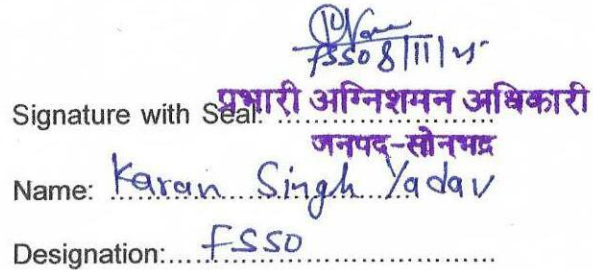 FSSO 8/11/25
Signature with Seal: प्रभारी अग्निशमन अधिकारी
जनपद-सोनभद्र
Name: Karan Singh Yadav
Designation: FSSO